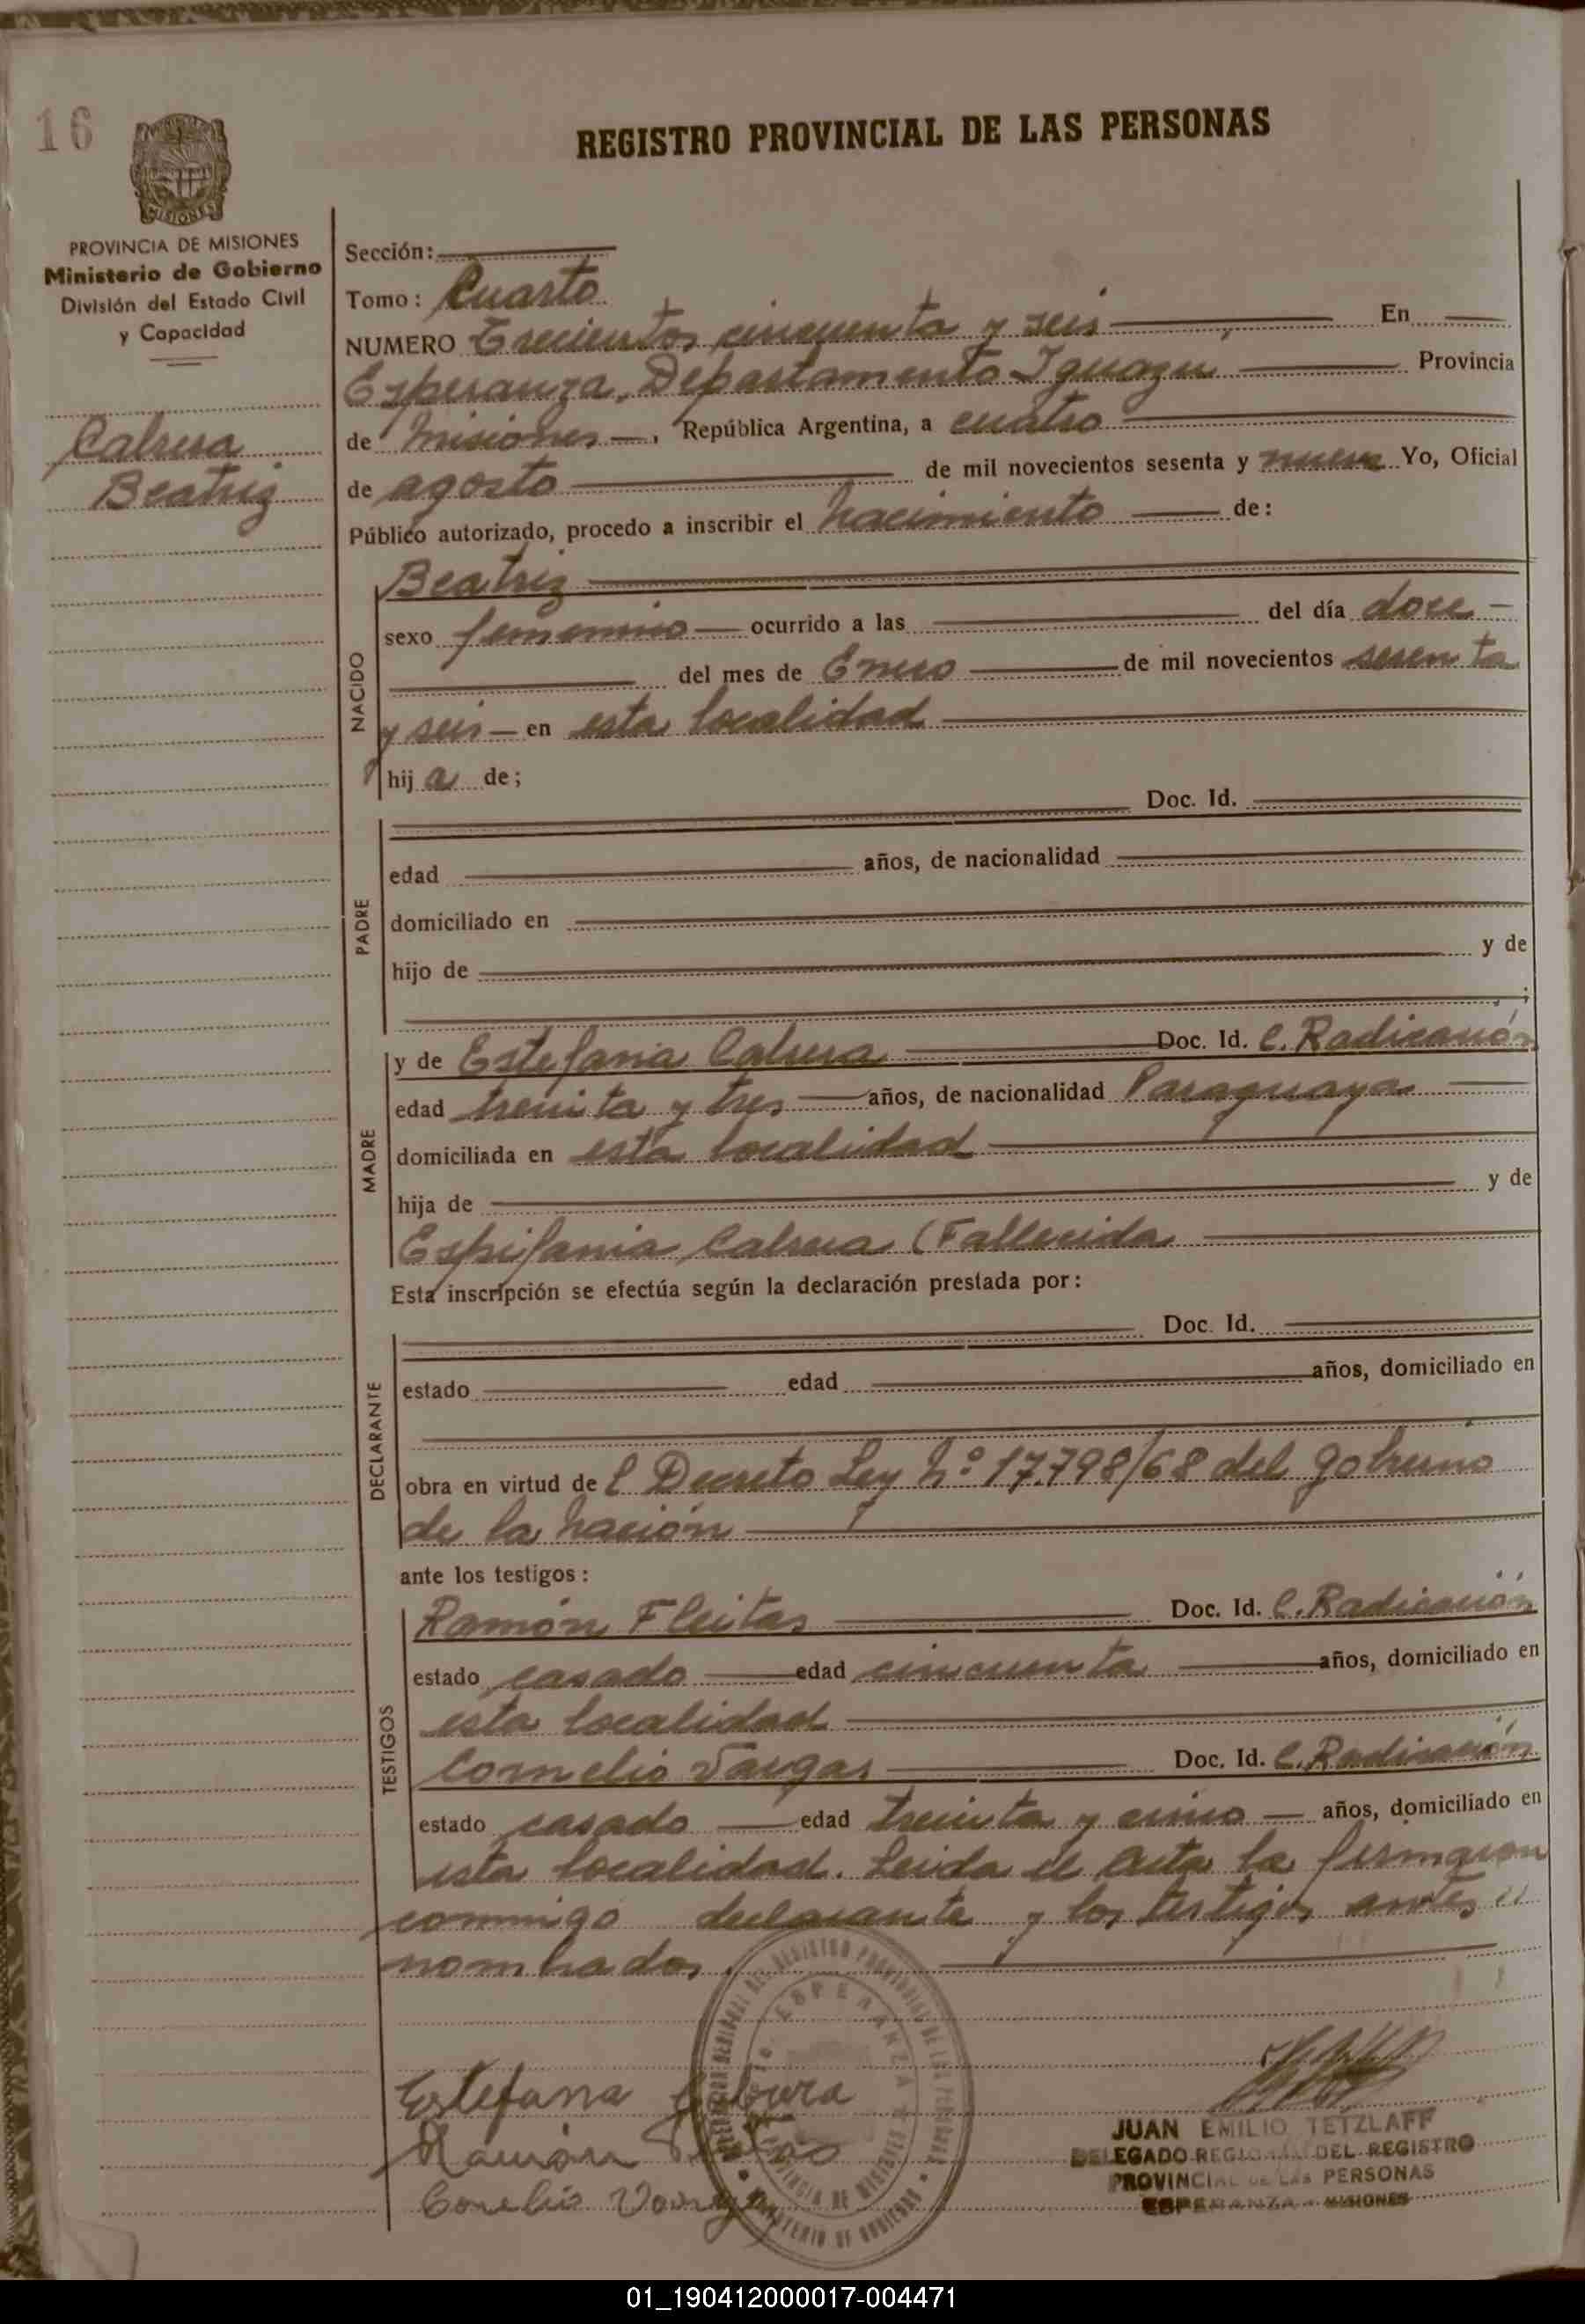 16
REGISTRO PROVINCIAL DE LAS PERSONAS
MISIONES
PROVINCIA DE MISIONES
Ministerio de Gobierno
División del Estado Civil
y Capacidad
Cabrera
Beatriz
Sección:
Tomo: Cuarto
NUMERO Trecientos cincuenta y seis En
Esperanza, Departamento Iguazu Provincia
de Misiones, República Argentina, a cuatro
de agosto de mil novecientos sesenta y nueve Yo, Oficial
Público autorizado, procedo a inscribir el nacimiento de:
NACIDO
Beatriz
sexo femenino ocurrido a las del día doce
del mes de Enero de mil novecientos sesenta
y seis en esta localidad
hija de;
PADRE
Doc. Id.
edad años, de nacionalidad
domiciliado en
hijo de y de
;
MADRE
y de Estefana Cabrera Doc. Id. C. Radicación
edad treinta y tres años, de nacionalidad Paraguaya
domiciliada en esta localidad
hija de y de
Espifania Cabrera (Fallecida
Esta inscripción se efectúa según la declaración prestada por:
DECLARANTE
Doc. Id.
estado edad años, domiciliado en
obra en virtud de l Decreto Ley Nº 17.798/68 del gobierno
de la nación
ante los testigos:
TESTIGOS
Ramón Fleitas Doc. Id. C. Radicación
estado casado edad cincuenta años, domiciliado en
esta localidad
Cornelio Vargas Doc. Id. C. Radicación
estado casado edad treinta y cinco años, domiciliado en
esta localidad. Leida el acta la firmaron
conmigo declarante y los testigos antes
nombrados.
ESPERANZA
PROVINCIA DE MISIONES
MINISTERIO DE GOBIERNO
Estefana Cabrera
Ramón Fleitas
Cornelio Vargas
JUAN EMILIO TETZLAFF
DELEGADO REGIONAL DEL REGISTRO
PROVINCIAL DE LAS PERSONAS
ESPERANZA - MISIONES
01_190412000017-004471